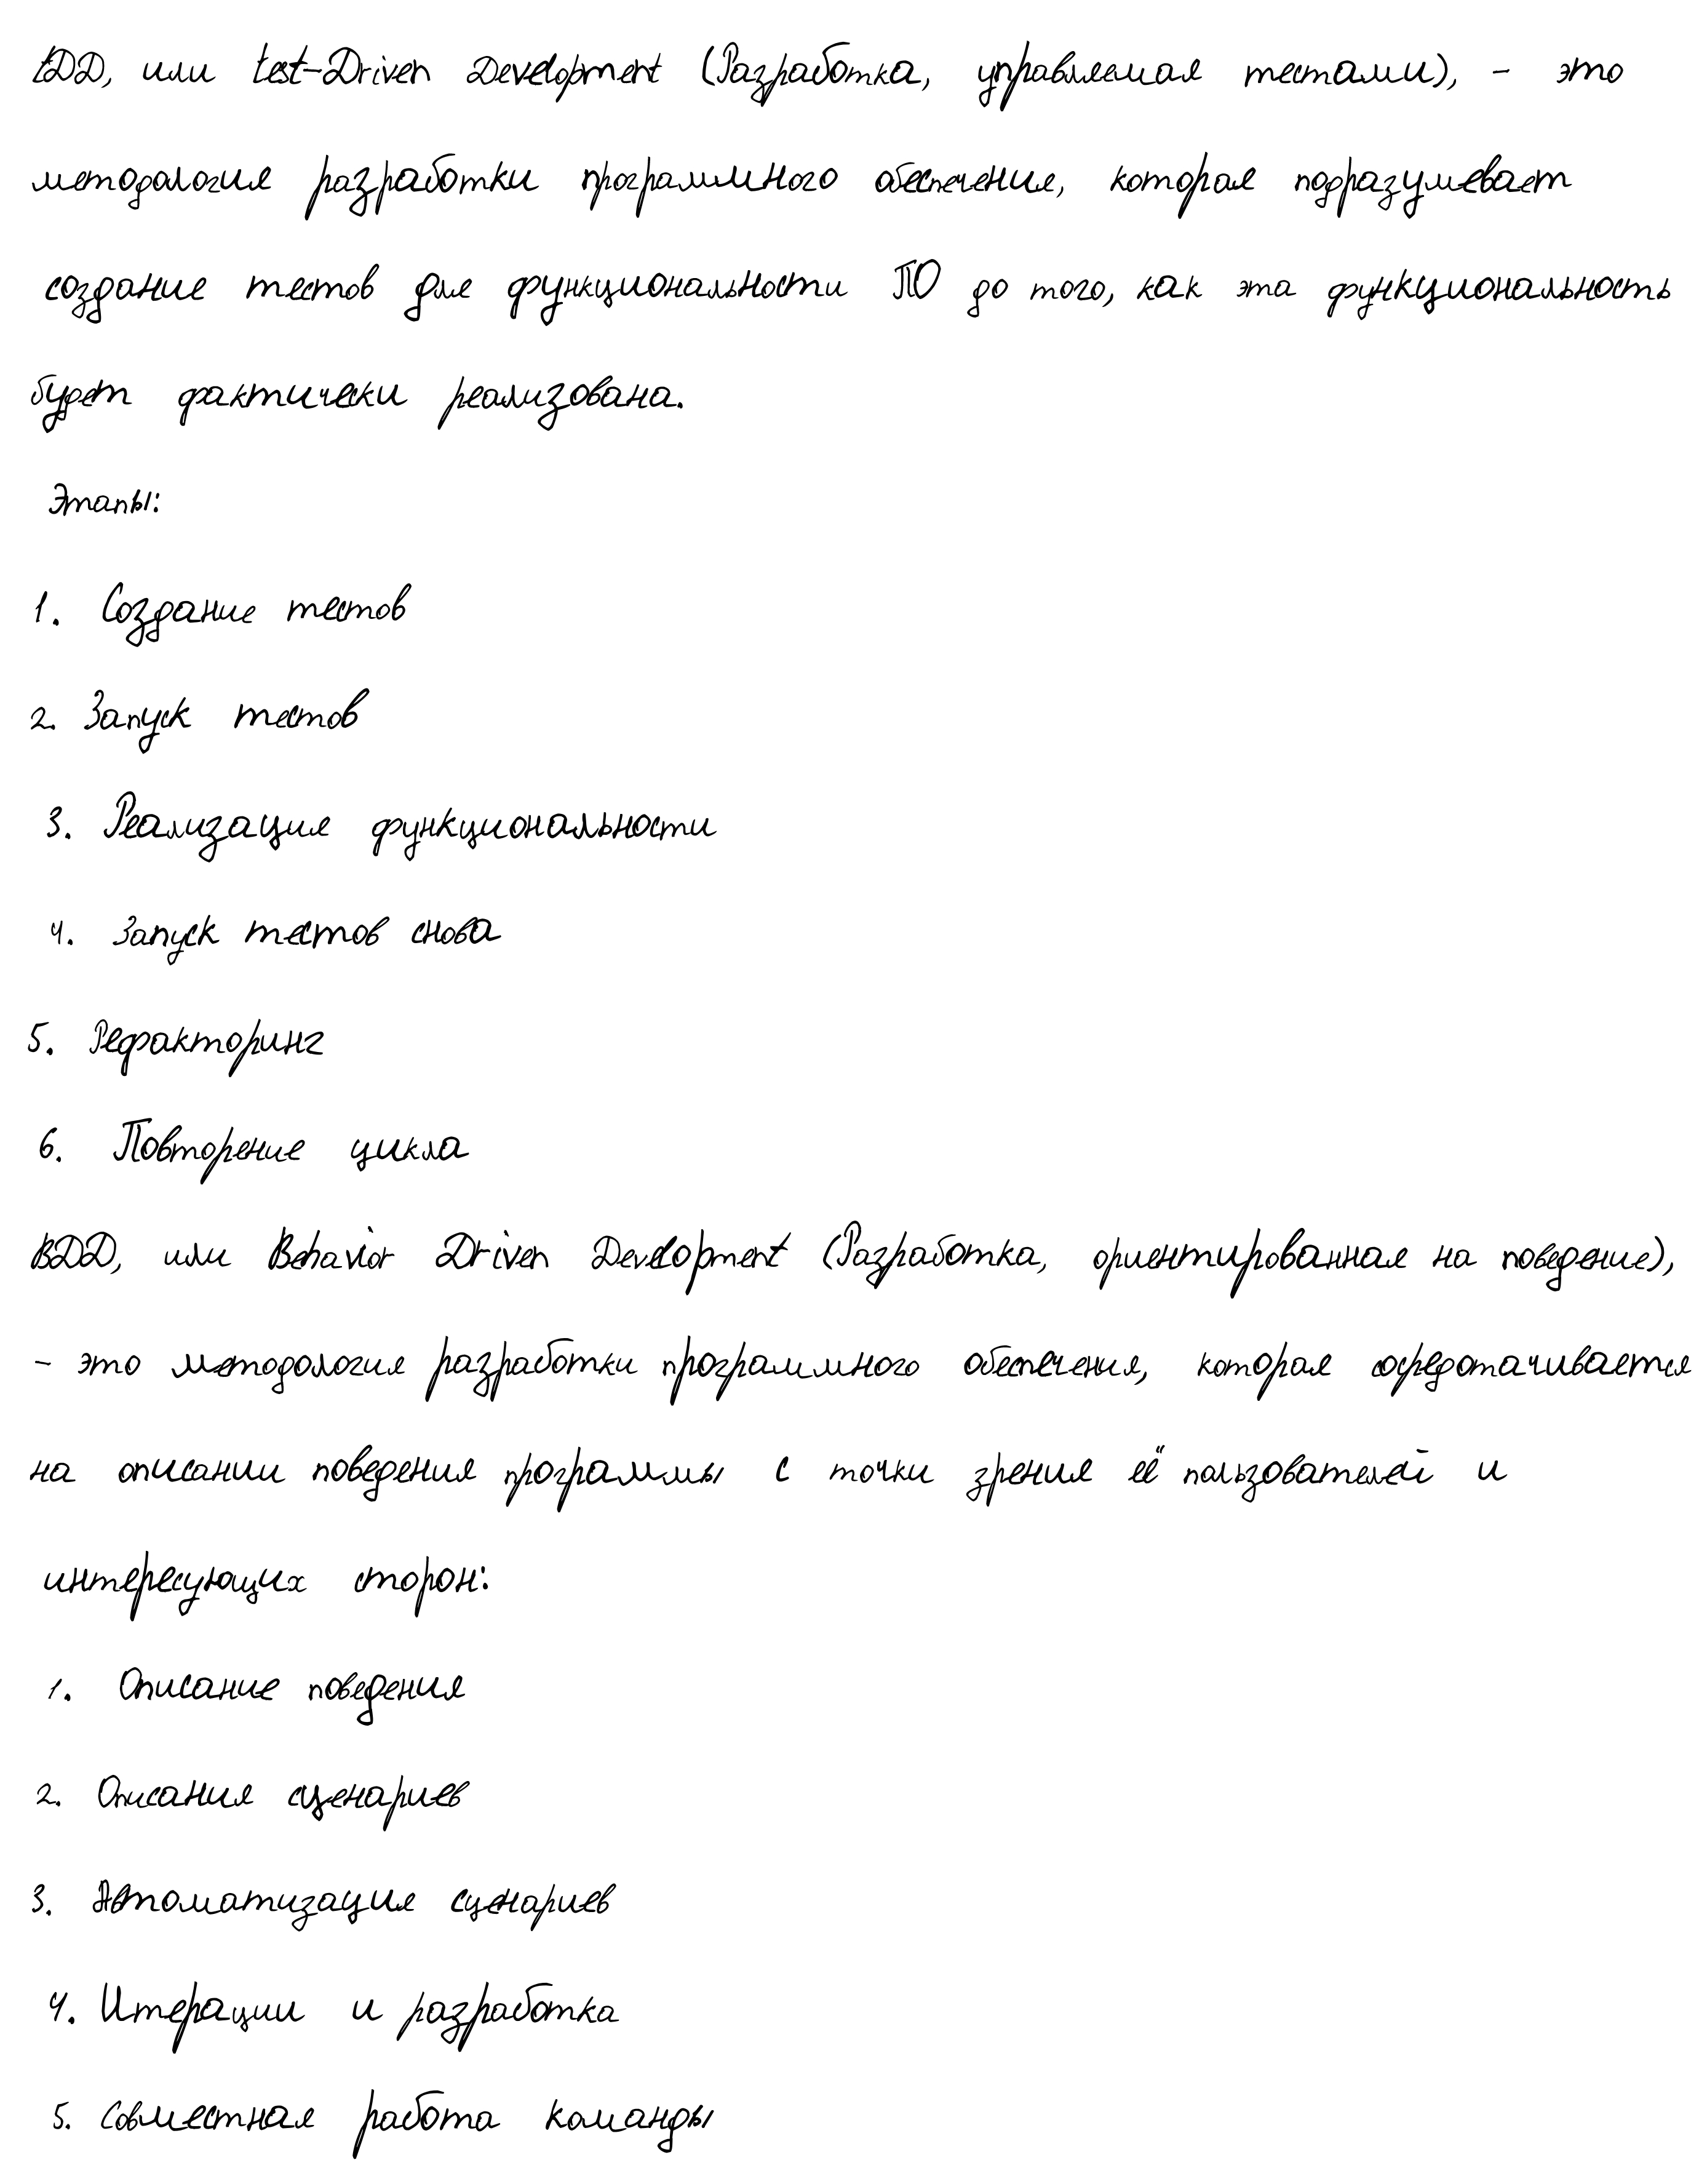 tDD, или test-Driven Development (Разработка, управляемая тестами), - это
методология разработки программного обеспечения, которая подразумевает
создание тестов для функциональности ПО до того, как эта функциональность
будет фактически реализована.
Этапы:
1. Создание тестов
2. Запуск тестов
3. Реализация функциональности
4. Запуск тестов снова
5. Рефакторинг
6. Повторение цикла
BDD, или Behavior Driven Development (Разработка, ориентированная на поведение),
- это методология разработки программного обеспечения, которая сосредотачивается
на описании поведения программы с точки зрения её пользователей и
интересующих сторон:
1. Описание поведения
2. Описания сценариев
3. Автоматизация сценариев
4. Итерации и разработка
5. Совместная работа команды